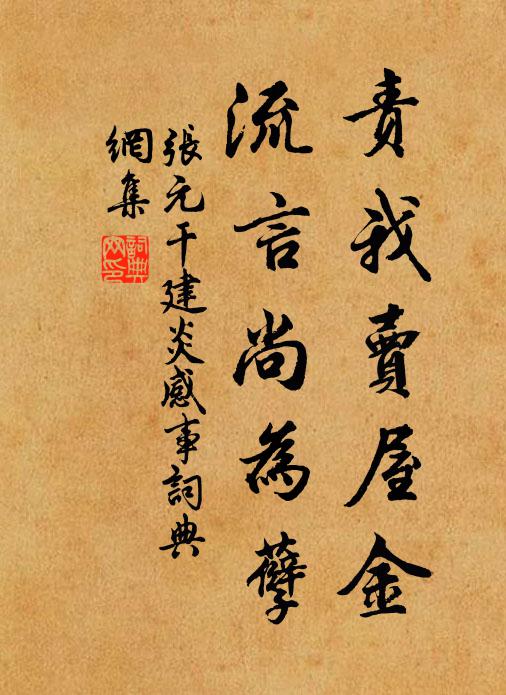 責我賣屋金
流言尚為孽
張元干建炎感事詞典
網集
詞典
网印